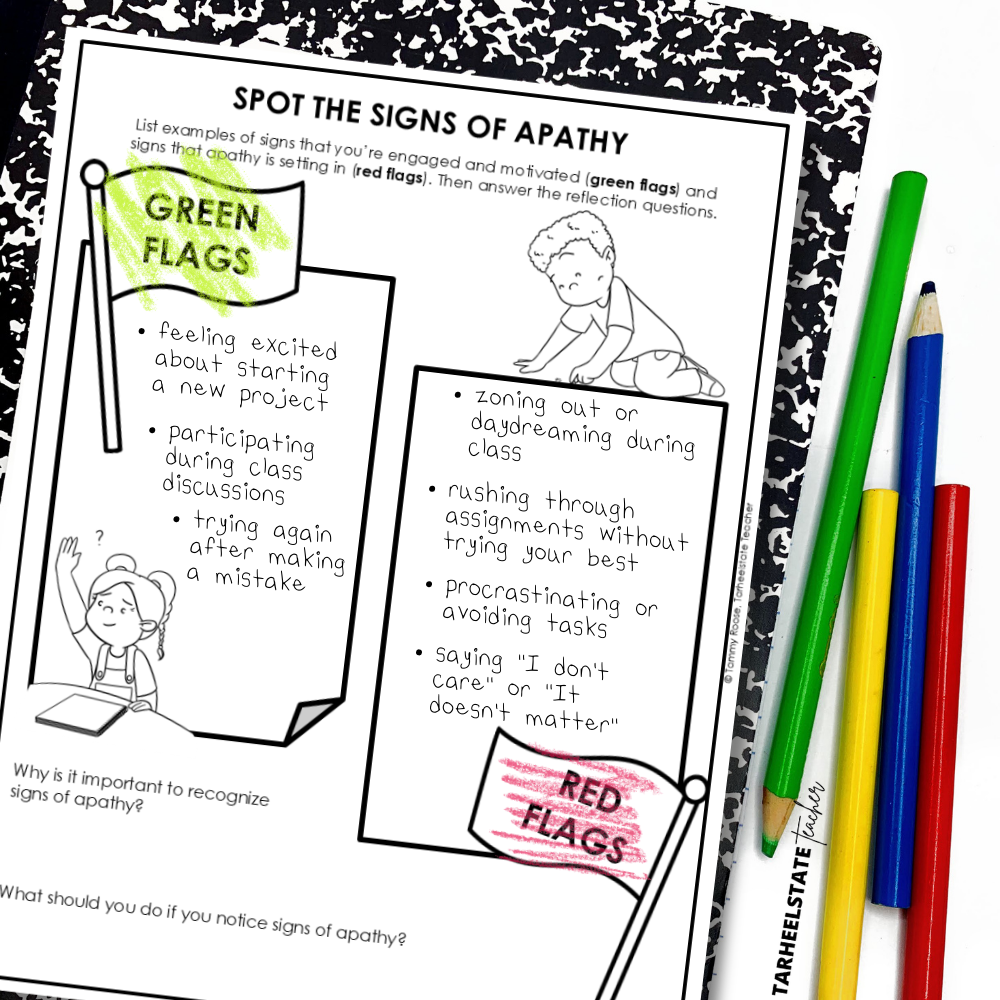 SPOT THE SIGNS OF APATHY
List examples of signs that you're engaged and motivated (green flags) and
signs that apathy is setting in (red flags). Then answer the reflection questions.
GREEN
FLAGS
• feeling excited
about starting
a new project
• participating
during class
discussions
• trying again
after making
a mistake
?
• zoning out or
daydreaming during
class
• rushing through
assignments without
trying your best
• procrastinating or
avoiding tasks
• saying "I don't
care" or "It
doesn't matter"
RED
FLAGS
Why is it important to recognize
signs of apathy?
What should you do if you notice signs of apathy?
© Tammy Roose, Tarheelstate Teacher
TARHEELSTATE teacher